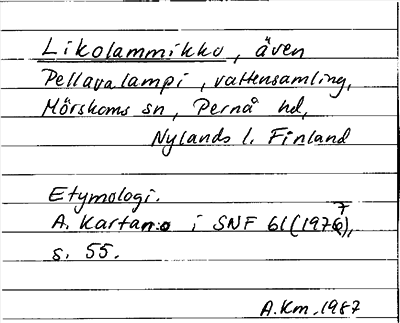 Likolammikko, även
Pellavalampi, vattensamling,
Mörskoms sn, Pernå hd,
Nylands l. Finland
Etymologi.
A. Kartano i SNF 61 (1977),
s. 55.
A.Km.1987